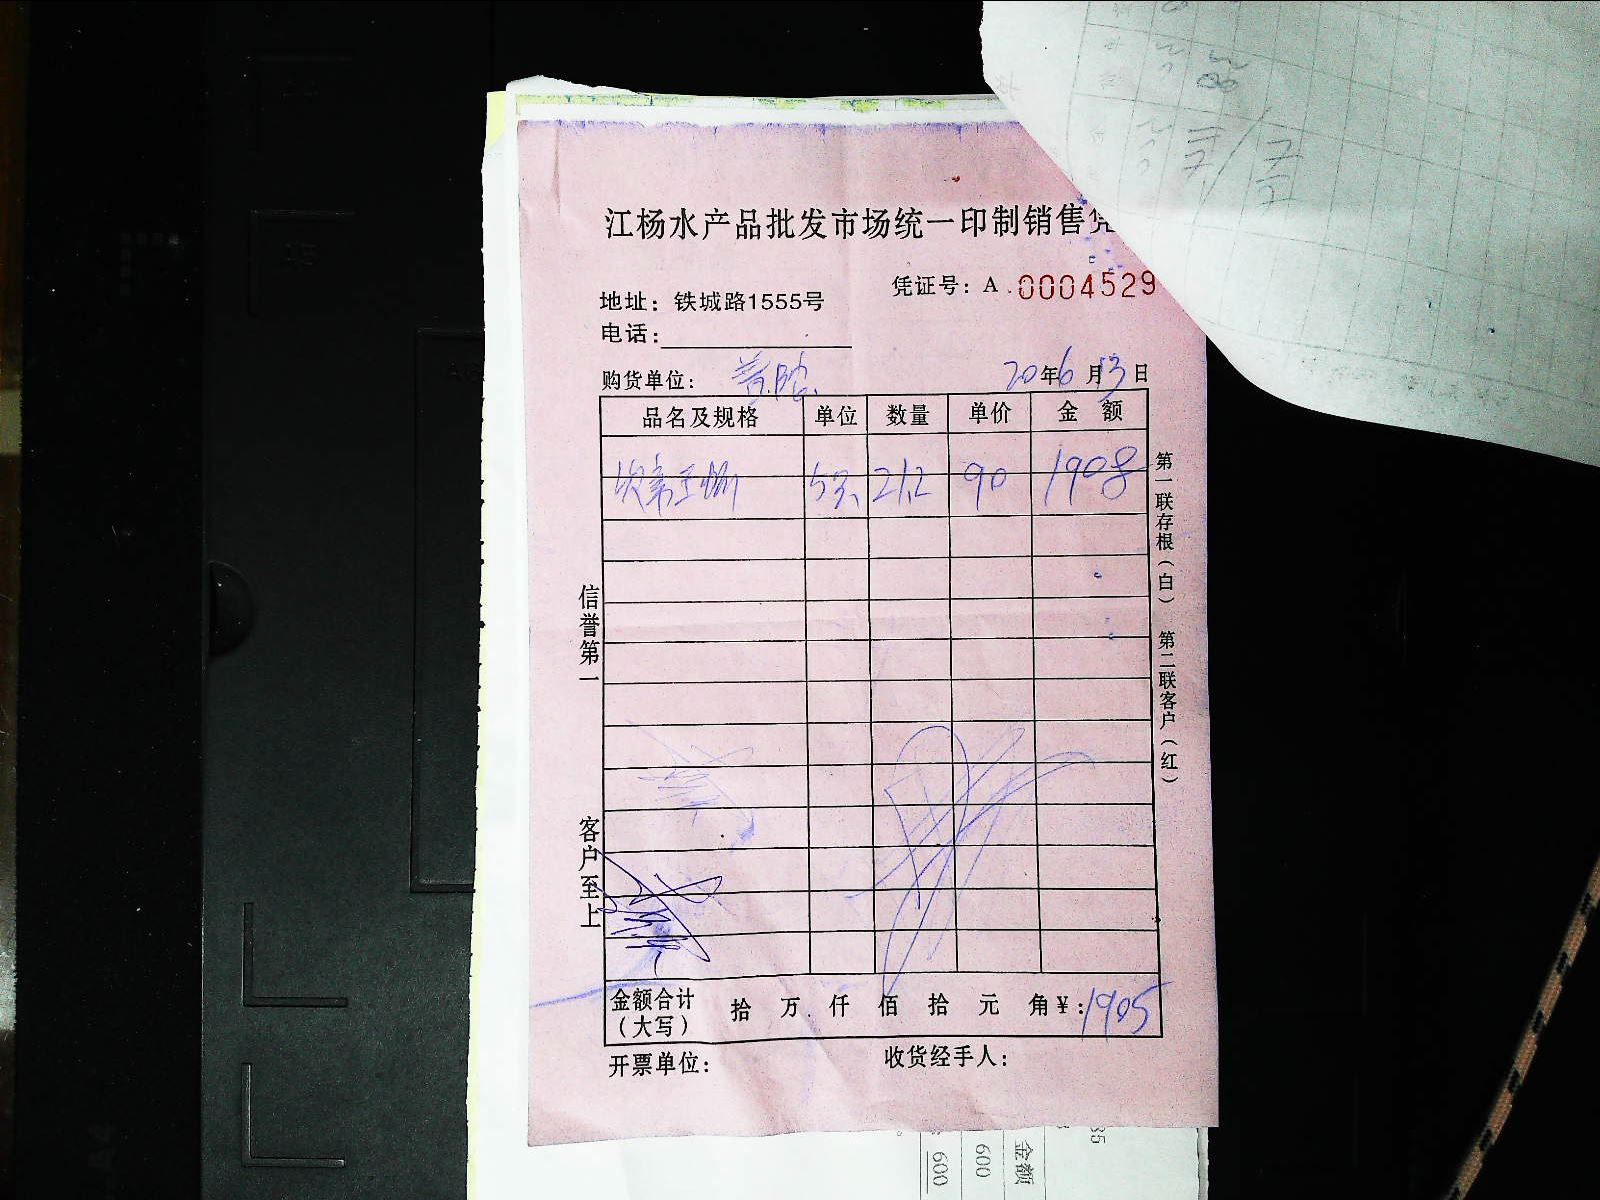 江杨水产品批发市场统一印制销售凭
凭证号：A 0004529
地址：铁城路1555号
电话：
购货单位：
20年6月13日
品名及规格 单位 数量 单价 金额
21.2 90 1908
第一联存根（白） 第二联客户（红）
信誉第一 客户至上
金额合计（大写） 拾 万 仟 佰 拾 元 角 ¥：1905
开票单位： 收货经手人：
金额
600
600